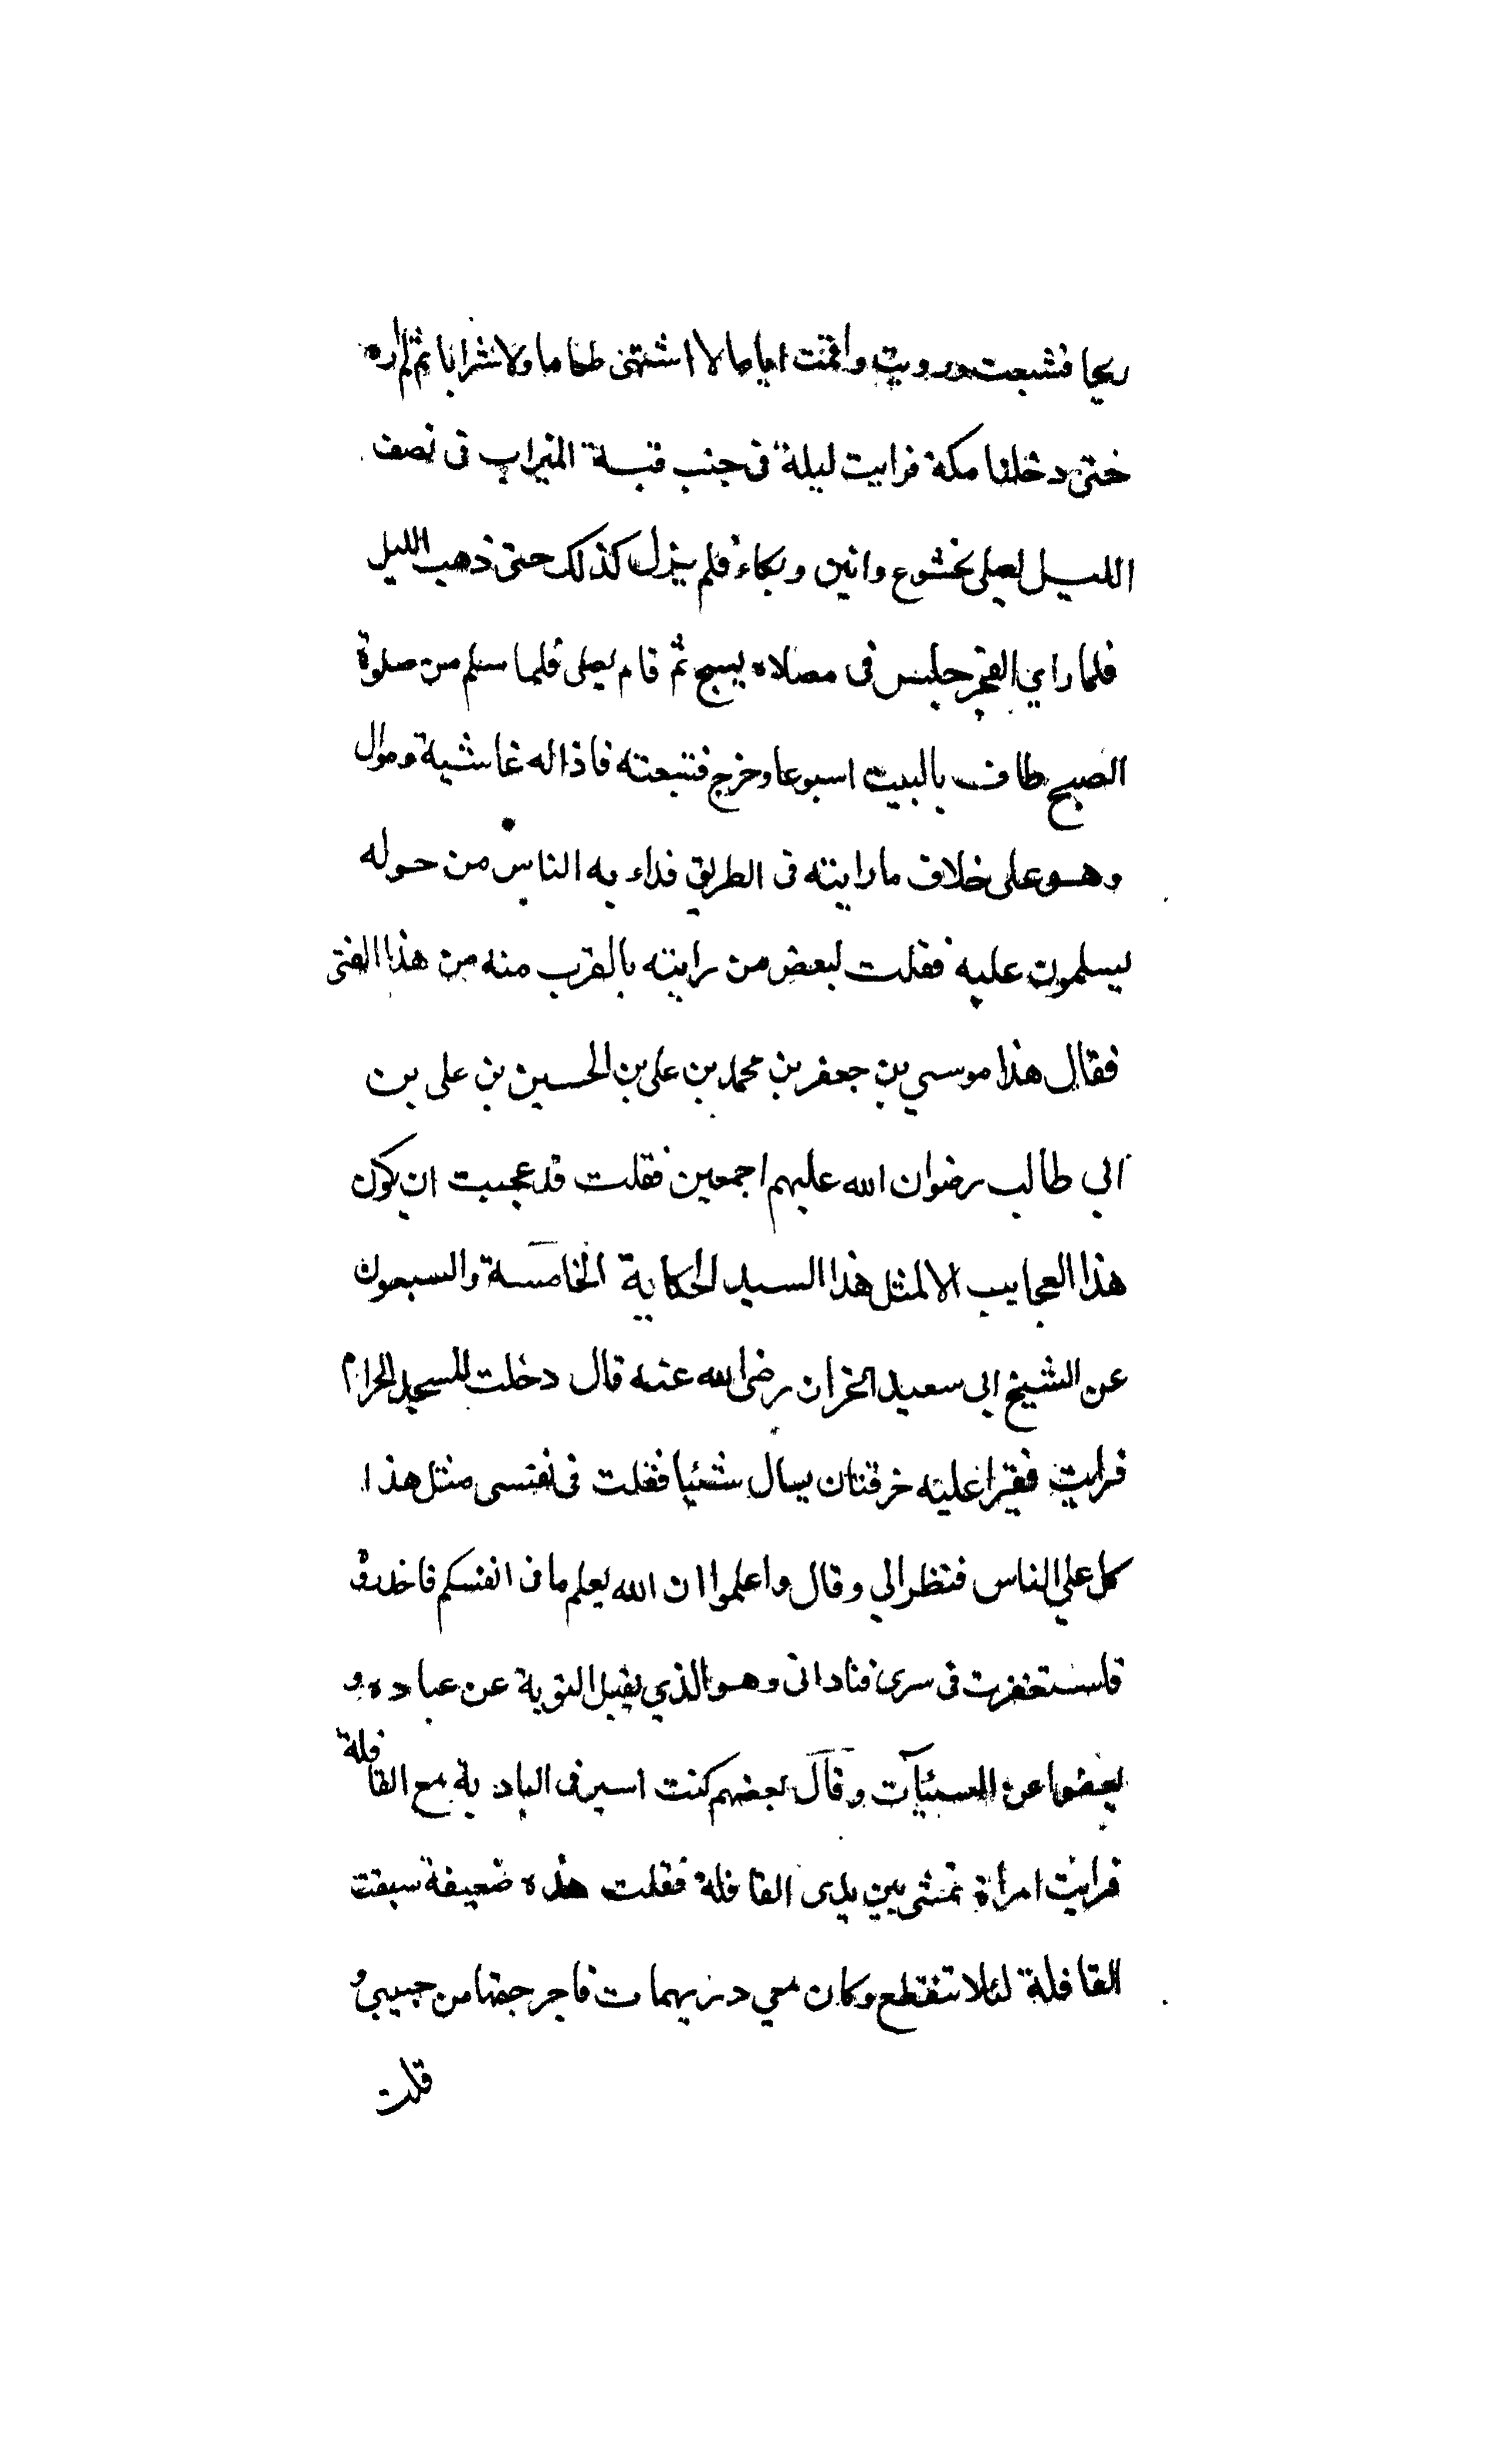 ريحا فشبعت ورويت واقمت اياما لا اشتهى طعاما ولا شرابا ثم لم اره
حتى دخلنا مكة فرايت ليلة فى جنب قبة الميزاب فى نصف
الليل يصلى بخشوع وانين وبكاء فلم يزل كذلك حتى ذهب الليل
فلما راي الفجر جلس فى مصلاه يسبح ثم قام يصلى فلما سلم من صلوة
الصبح طاف بالبيت اسبوعا وخرج فتبعته فاذا له غاشية وموال
وهو على خلاف ما رايته فى الطريق فداء به الناس من حوله
يسلمون عليه فقلت لبعض من رايته بالقرب منه من هذا الفتى
فقال هذا موسي بن جعفر بن محمد بن على بن الحسين بن على بن
ابي طالب رضوان الله عليهم اجمعين فقلت قد عجبت ان يكون
هذا العجايب الا لمثل هذا السيد الحكاية الخامسة والسبعون
عن الشيخ ابي سعيد الخزان رضى الله عنه قال دخلت المسجد الحرام
فرايت فقيرا عليه خرقتان يسال شئيا فقلت فى نفسى مثل هذا
كل علي الناس فنظر الي وقال واعلموا ان الله يعلم ما فى انفسكم فاحذروه
فاستغفرت فى سرى فنادانى وهو الذي يقبل التوبة عن عباده و
يعفوا عن السيئات وقال بعضهم كنت اسير فى البادية مع القافلة
فرايت امرأة تمشى بين يدى القافلة فقلت هذه ضعيفة سبقت
القافلة لئلا تنقطع وكان معي دريهمات فاخرجتها من جيبي و
قلت